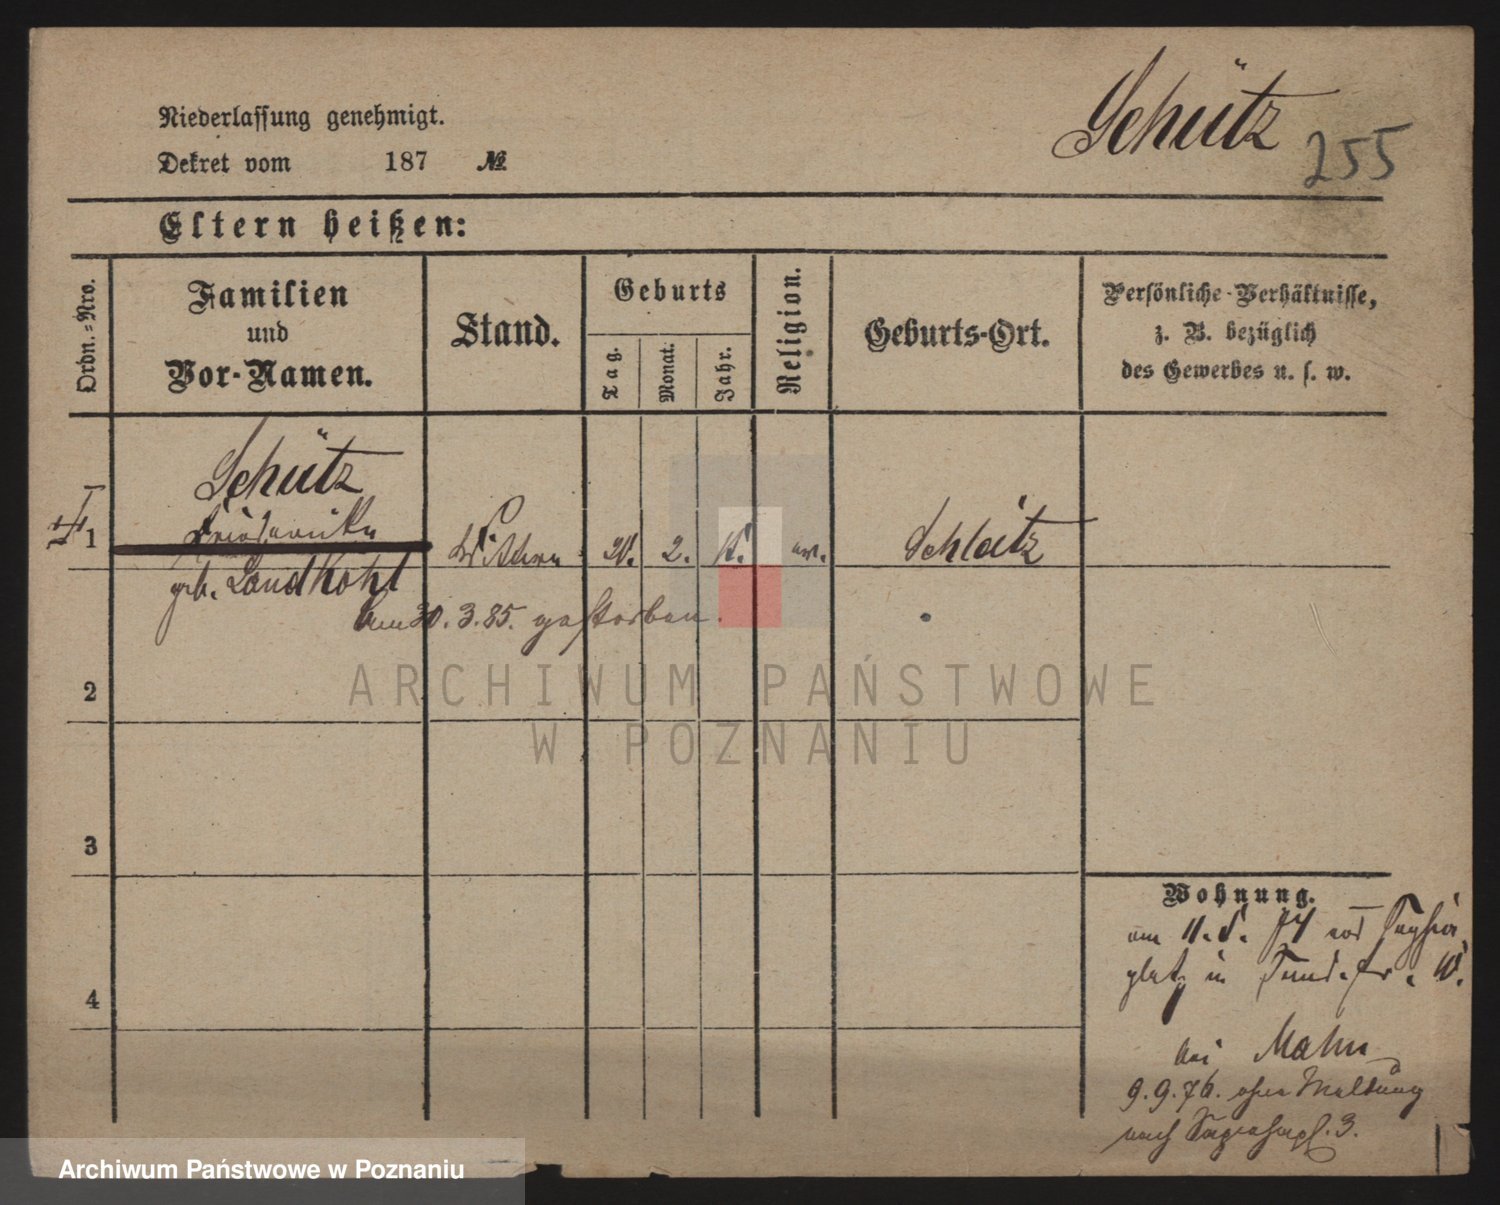 Schütz
255
Niederlassung genehmigt.
Dekret vom 187 №
Eltern heißen:
Ordn.-Nro.
Familien
und
Vor-Namen.
Stand.
Geburts
Tag.
Monat.
Jahr.
Religion.
Geburts-Ort.
Persönliche Verhältnisse,
z. B. bezüglich
des Gewerbes u. s. w.
Schütz
1 Friederike Wittwe 2. ev. Schleitz
geb. Landkohl
am 30. 3. 85. gestorben.
2
3
4
Wohnung.
am 11.
platz in
bei Mahn
9. 9. 76. ohne Meldung
nach 3.
ARCHIWUM PAŃSTWOWE
W POZNANIU
Archiwum Państwowe w Poznaniu